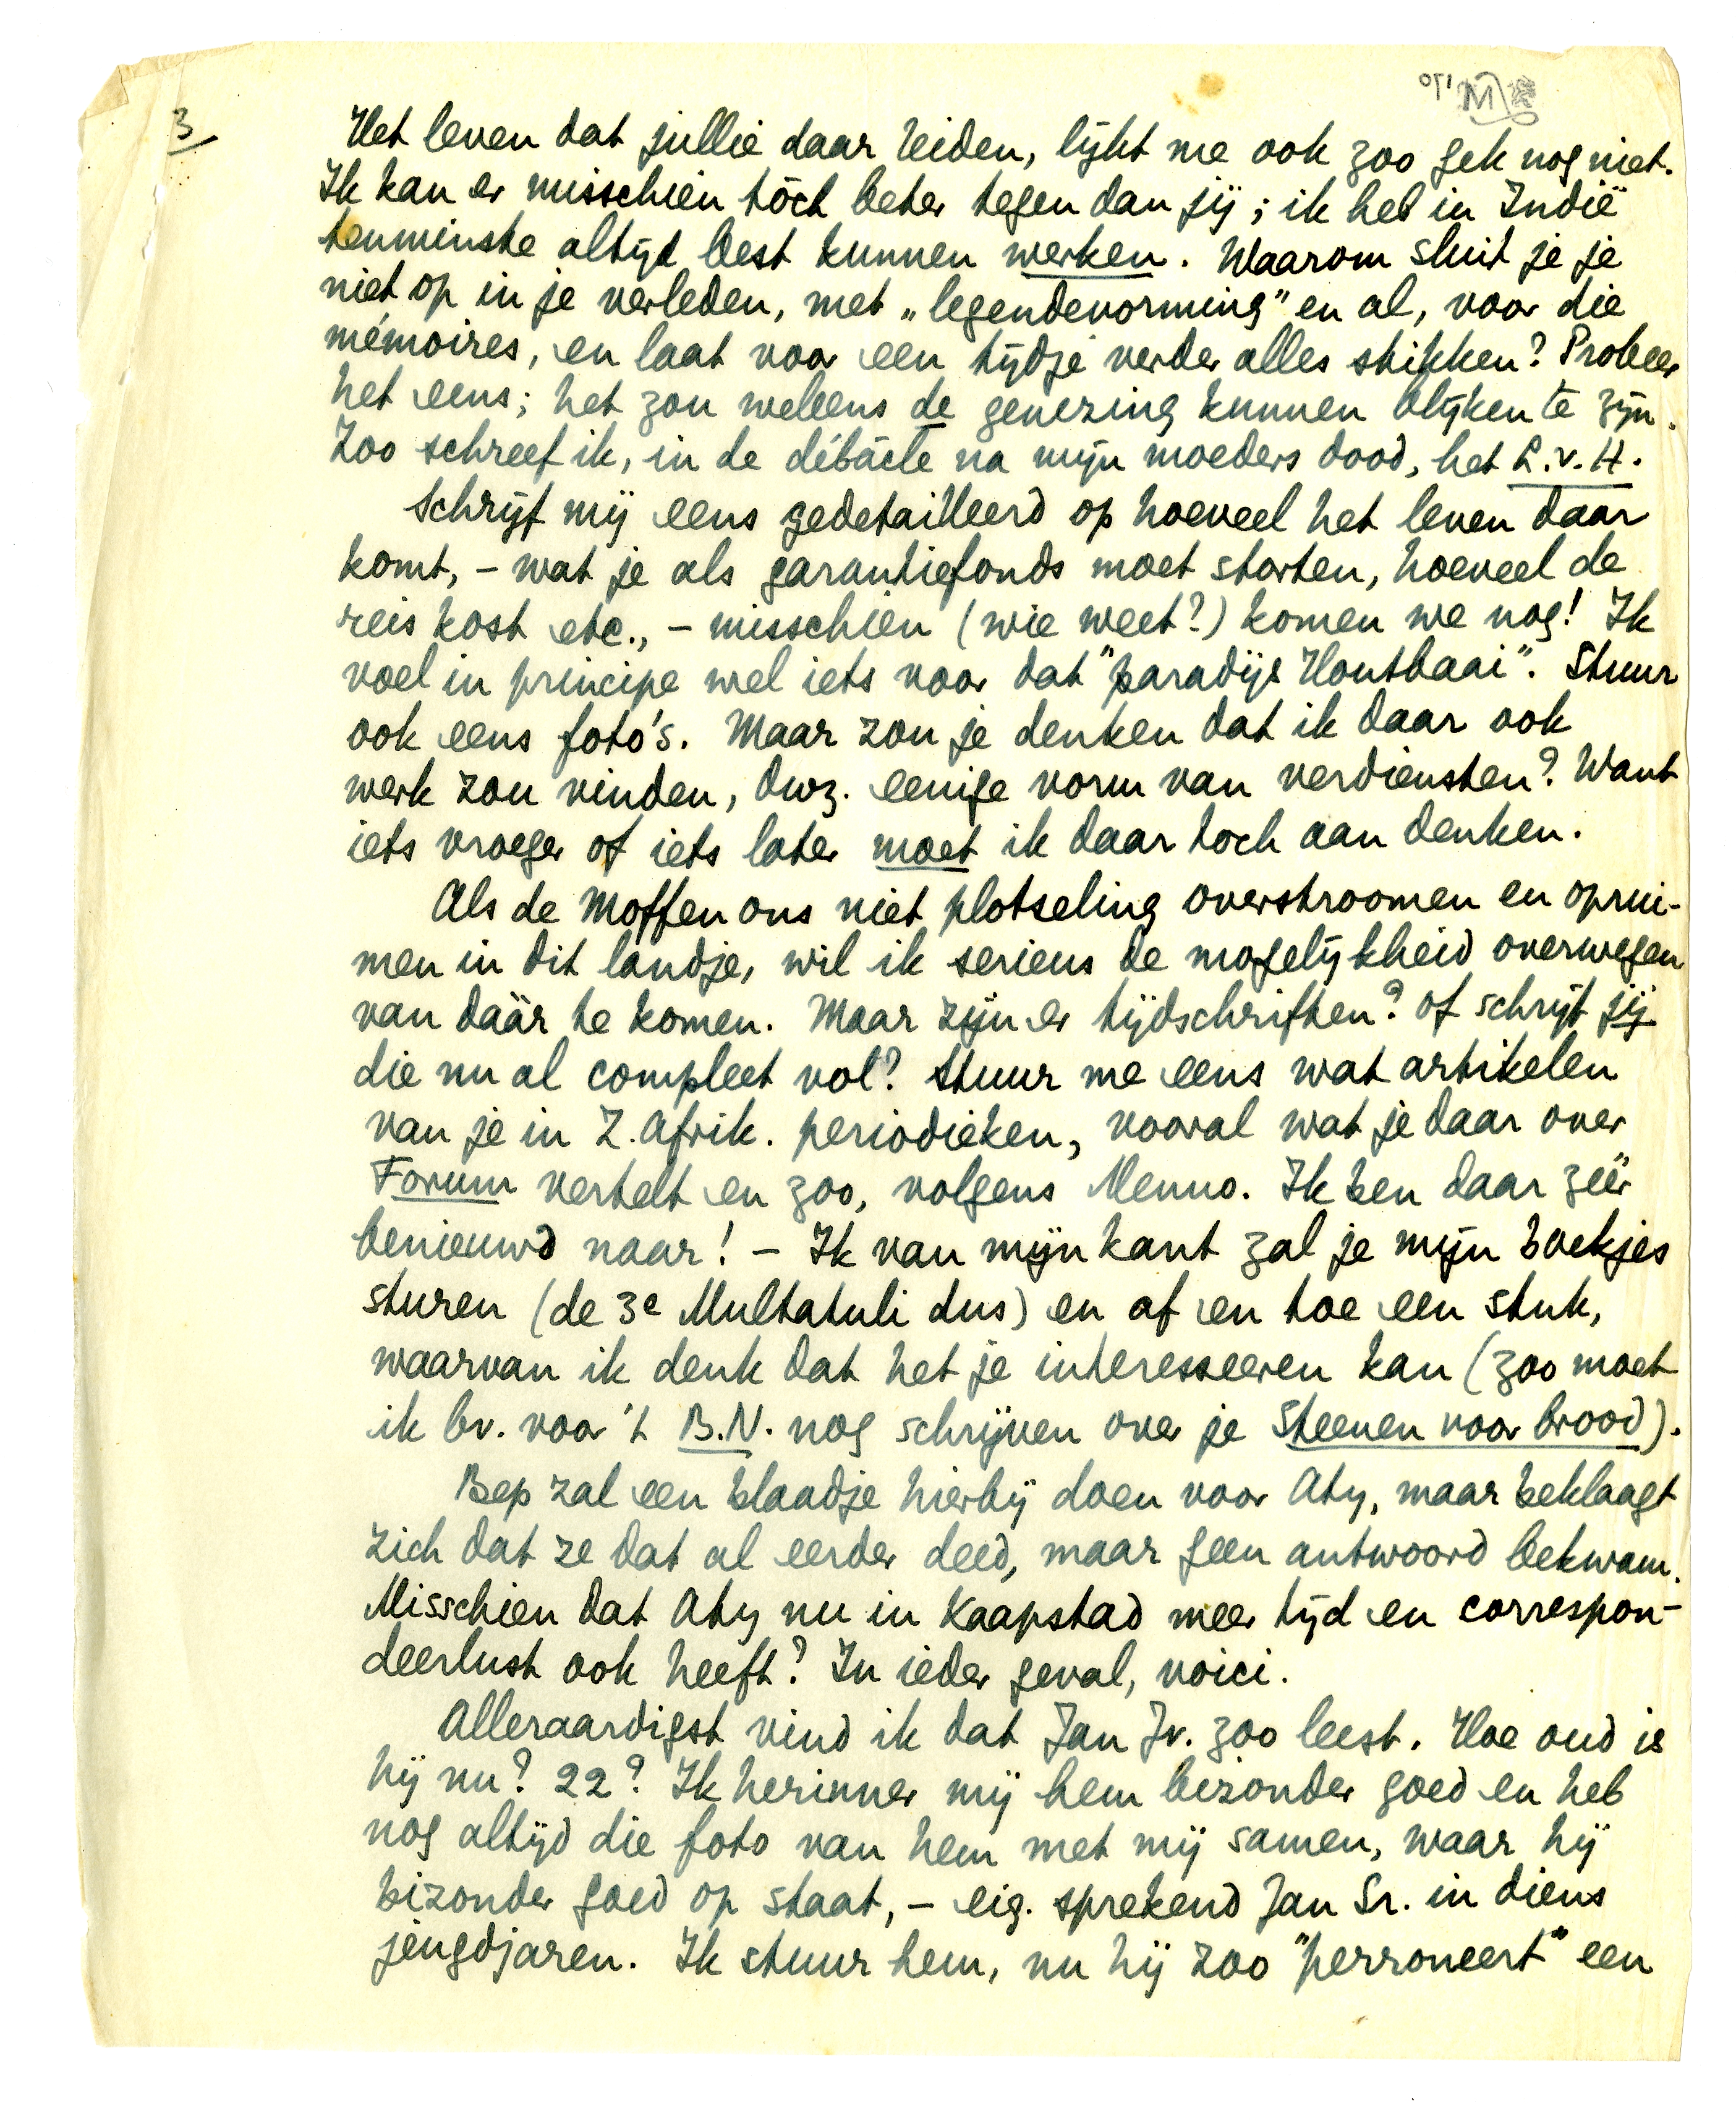 3
Het leven dat jullie daar leiden, lijkt me ook zoo gek nog niet.
Ik kan er misschien tòch beter tegen dan jij; ik heb in Indië
tenminste altijd best kunnen werken. Waarom sluit je je
niet op in je verleden, met „legendevorming” en al, voor die
mémoires, en laat voor een tijdje verder alles stikken? Probeer
het eens; het zou weleens de genezing kunnen blijken te zijn.
Zoo schreef ik, in de débâcle na mijn moeders dood, het L.v.H.
Schrijf mij eens gedetailleerd op hoeveel het leven daar
komt, – wat je als garantiefonds moet storten, hoeveel de
reis kost etc., – misschien (wie weet?) komen we nog! Ik
voel in principe wel iets voor dat "paradijs Houtbaai". Stuur
ook eens foto's. Maar zou je denken dat ik daar ook
werk zou vinden, dwz. eenige vorm van verdiensten? Want
iets vroeger of iets later moet ik daar toch aan denken.
Als de Moffen ons niet plotseling overstroomen en oprui-
men in dit landje, wil ik serieus de mogelijkheid overwegen
van dáár te komen. Maar zijn er tijdschriften? of schrijf jij
die nu al compleet vol? Stuur me eens wat artikelen
van je in Z. Afrik. periodieken, vooral wat je daar over
Forum vertelt en zoo, volgens Menno. Ik ben daar zéér
benieuwd naar! – Ik van mijn kant zal je mijn boekjes
sturen (de 3e Multatuli dus) en af en toe een stuk,
waarvan ik denk dat het je interesseeren kan (zoo moet
ik bv. voor 't B.N. nog schrijven over je Steenen voor brood).
Bep zal een blaadje hierbij doen voor Aty, maar beklaagt
zich dat ze dat al eerder deed, maar geen antwoord bekwam.
Misschien dat Aty nu in Kaapstad meer tijd en correspon-
deerlust ook heeft? In ieder geval, voici.
Alleraardigst vind ik dat Jan Jr. zoo leest. Hoe oud is
hij nu? 22? Ik herinner mij hem bizonder goed en heb
nog altijd die foto van hem met mij samen, waar hij
bizonder goed op staat, – eig. sprekend Jan Sr. in diens
jeugdjaren. Ik stuur hem, nu hij zoo "perroneert" een